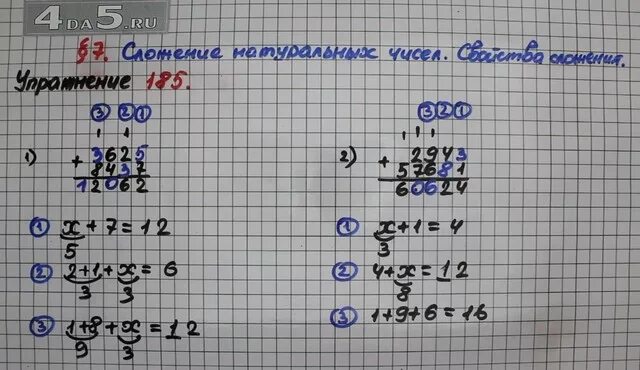 4DA5.RU
§7. Сложение натуральных чисел. Свойства сложения.
Упражнение 185.
③ ②①
1 1
1) + 3625
8437
12062
① x + 7 = 12
5
② 2+1 + x = 6
3 3
③ 1+8 + x = 12
9 3
③②①
1 1 1
2) + 2943
57681
60624
① x + 1 = 4
3
② 4 + x = 12
8
③ 1+9+6 = 16